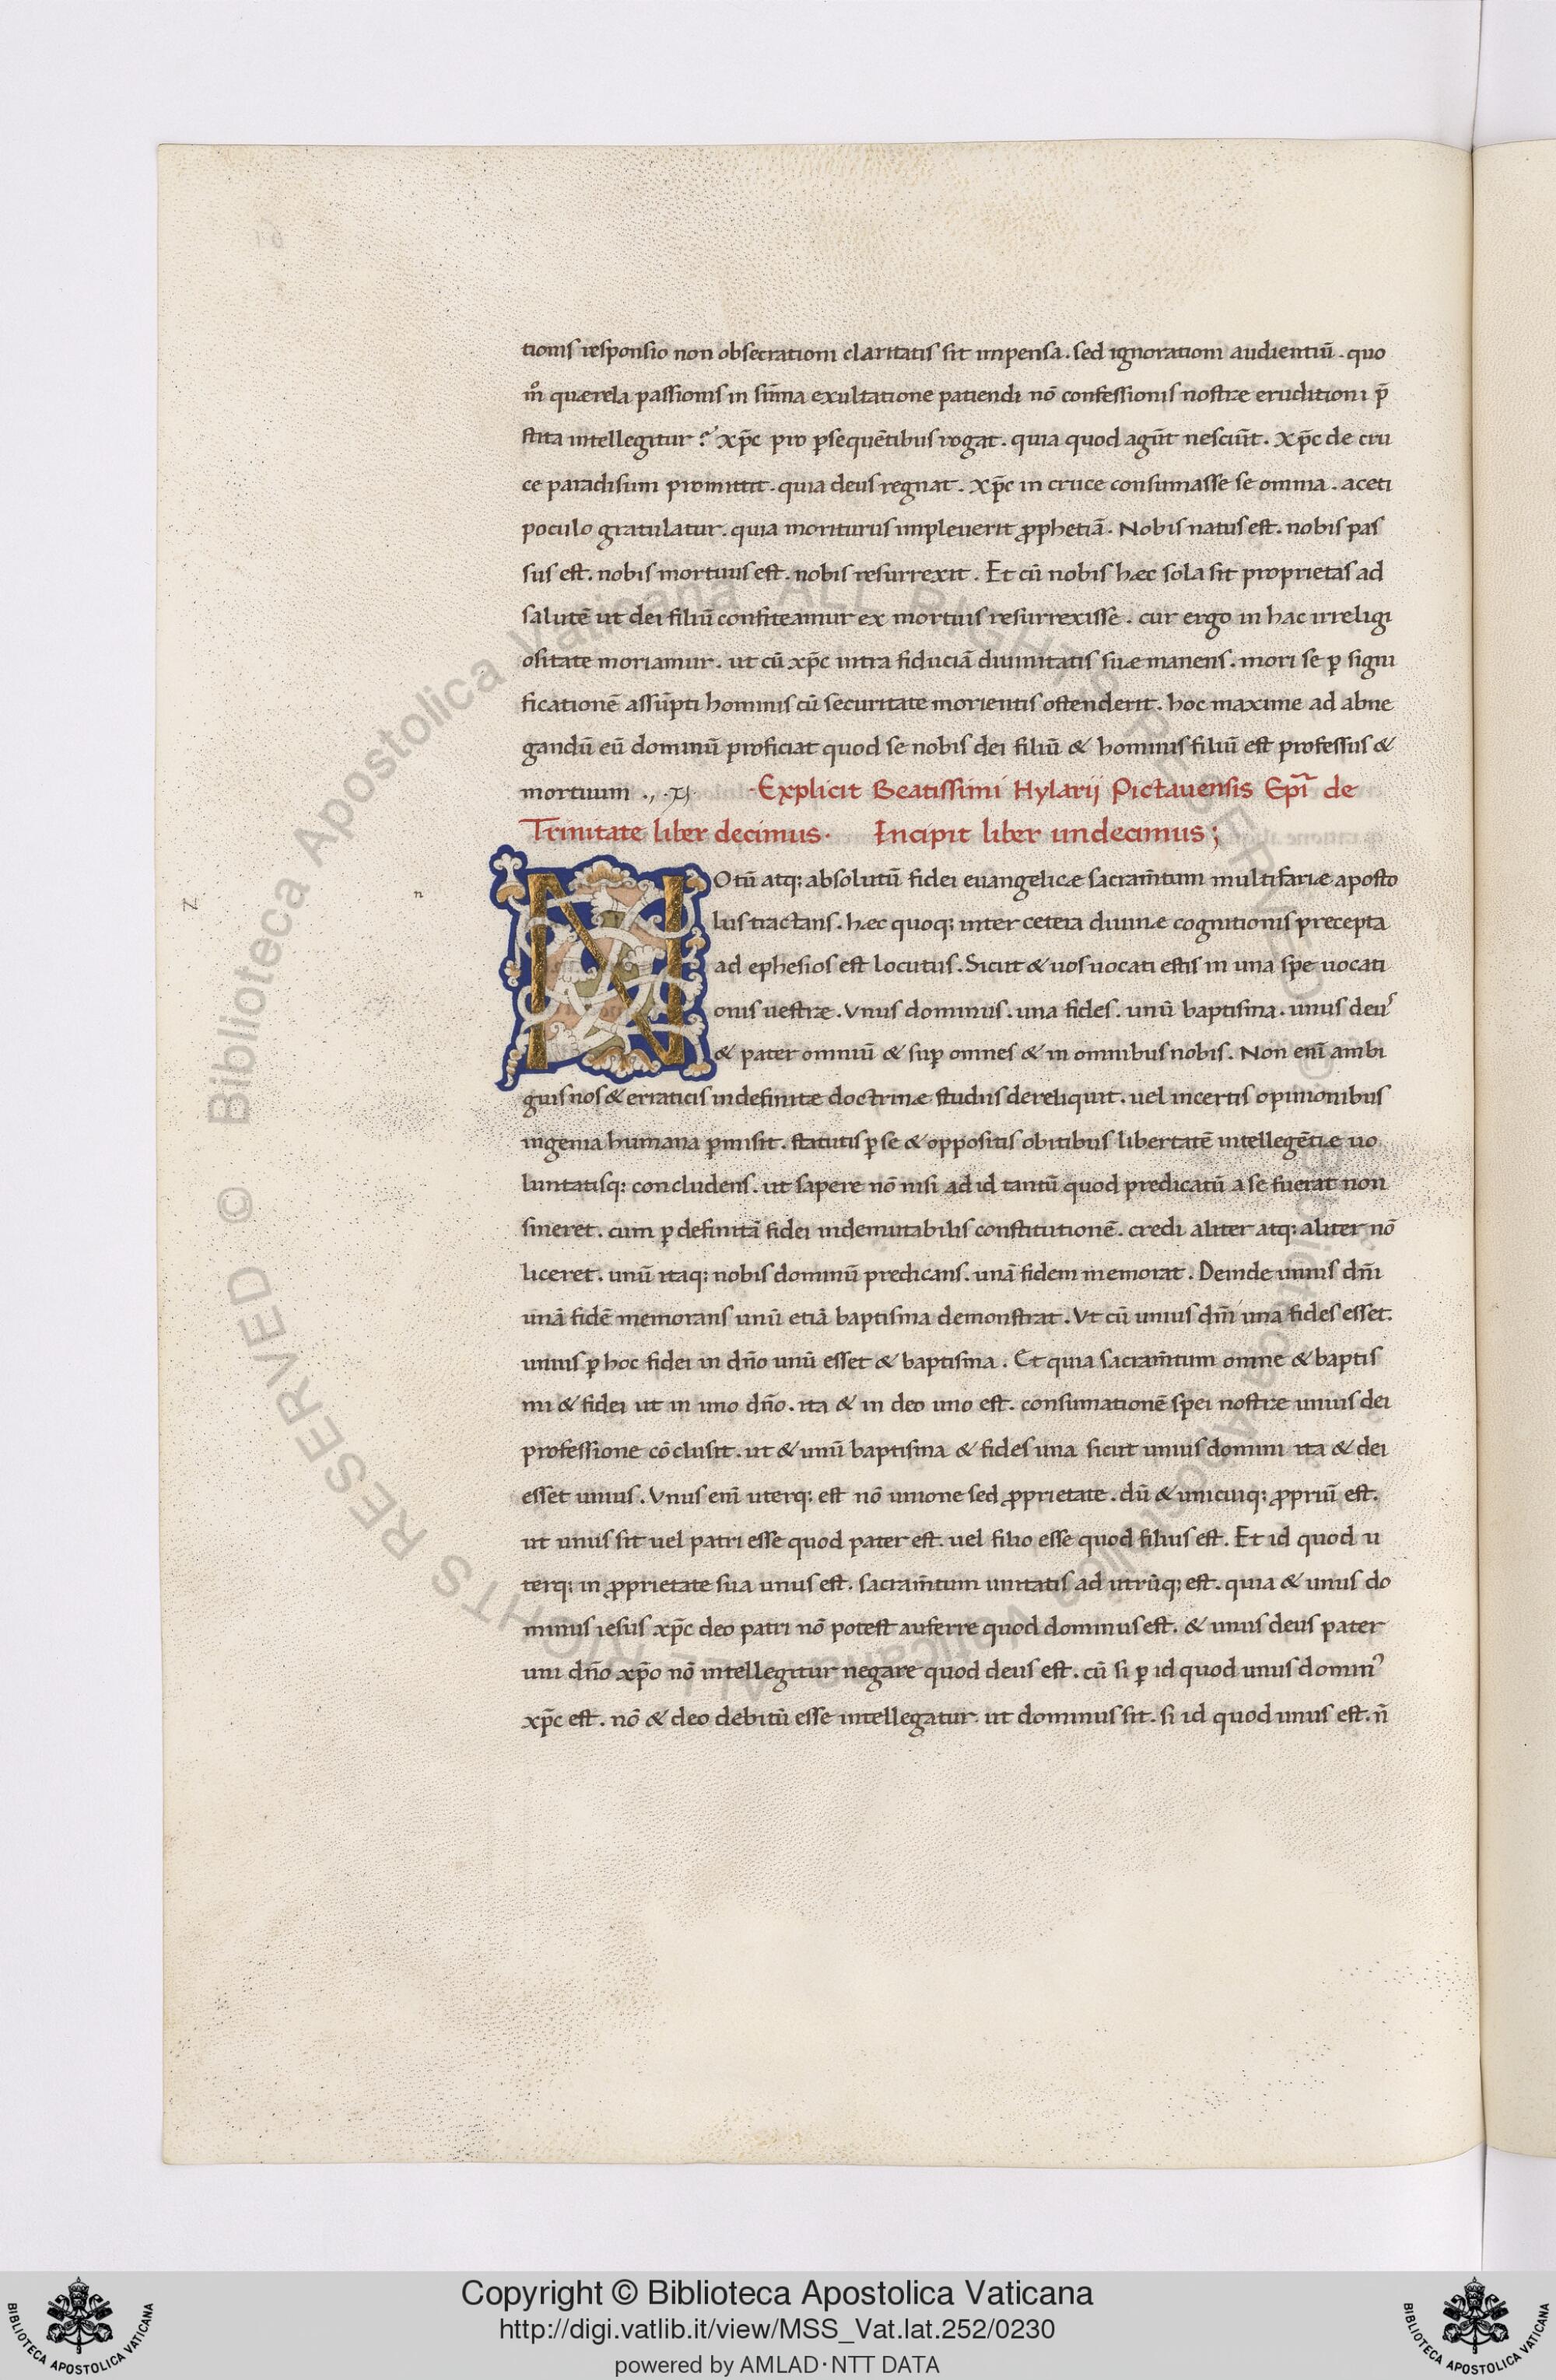 tionis responsio non obsecrationi claritatis sit impensa. sed ignorationi audientiū. quo
m̊ quærela passionis in sūma exultatione patiendi nō confessionis nostræ eruditioni p̄
stita intellegitur? xp̄c pro ꝑsequētibus rogat. quia quod agūt nesciūt. xp̄c de cru
ce paradisum promittit. quia deus regnat. xp̄c in cruce consumasse se omnia. aceti
poculo gratulatur. quia moriturus impleuerit ꝓphetiā. Nobis natus est. nobis pas
sus est. nobis mortuus est. nobis resurrexit. Et cū nobis hæc sola sit proprietas ad
salutē ut dei filiū confiteamur ex mortuis resurrexisse. cur ergo in hac irreligi
ositate moriamur. ut cū xp̄c intra fiduciā diuinitatis suæ manens. mori se ꝑ signi
ficationē assūpti hominis cū securitate morientis ostenderit. hoc maxime ad abne
gandū eū dominū proficiat quod se nobis dei filiū & hominis filiū est professus &
mortuum
Explicit Beatissimi Hylarij Pictauensis Ep̄i de
Trinitate liber decimus. Incipit liber undecimus;
n
NOtū atq; absolutū fidei euangelicæ sacram̄tum multifariæ aposto
lus tractans. hæc quoq; inter cetera diuinæ cognitionis precepta
ad ephesios est locutus. Sicut & uos uocati estis in una spe uocati
onis uestræ. Vnus dominus. una fides. unū baptisma. unus deus
& pater omniū & suꝑ omnes & in omnibus nobis. Non enī ambi
guis nos & erraticis indefinitæ doctrinæ studiis dereliquit. uel incertis opinionibus
ingenia humana ꝑmisit. statutis ꝑ se & oppositis obitibus libertatē intellegētiæ uo
luntatisq; concludens. ut sapere nō nisi ad id tantū quod predicatū a se fuerat non
sineret. cum ꝑ definitā fidei indemutabilis constitutionē. credi aliter atq; aliter nō
liceret. unū itaq; nobis dominū predicans. unā fidem memorat. Deinde unius dn̄i
unā fidē memorans unū etiā baptisma demonstrat. Vt cū unius dn̄i una fides esset.
unius ꝑ hoc fidei in dn̄o unū esset & baptisma. Et quia sacram̄tum omne & baptis
mi & fidei ut in uno dn̄o. ita & in deo uno est. consumationē spei nostræ unius dei
professione cōclusit. ut & unū baptisma & fides una sicut unius domini ita & dei
esset unius. Vnus enī uterq; est nō unione sed ꝓprietate. dū & unicuiq; ꝓpriū est.
ut unus sit uel patri esse quod pater est. uel filio esse quod filius est. Et id quod u
terq; in ꝓprietate sua unus est. sacram̄tum unitatis ad utrūq; est. quia & unus do
minus iesus xp̄c deo patri nō potest auferre quod dominus est. & unus deus pater
uni dn̄o xp̄o nō intellegitur negare quod deus est. cū si ꝑ id quod unus dominꝰ
xp̄c est. nō & deo debitū esse intellegatur. ut dominus sit. si id quod unus est. n̄
© Biblioteca Apostolica Vaticana ALL RIGHTS RESERVED
Copyright © Biblioteca Apostolica Vaticana
http://digi.vatlib.it/view/MSS_Vat.lat.252/0230
powered by AMLAD·NTT DATA
BIBLIOTECA APOSTOLICA VATICANA
BIBLIOTECA APOSTOLICA VATICANA